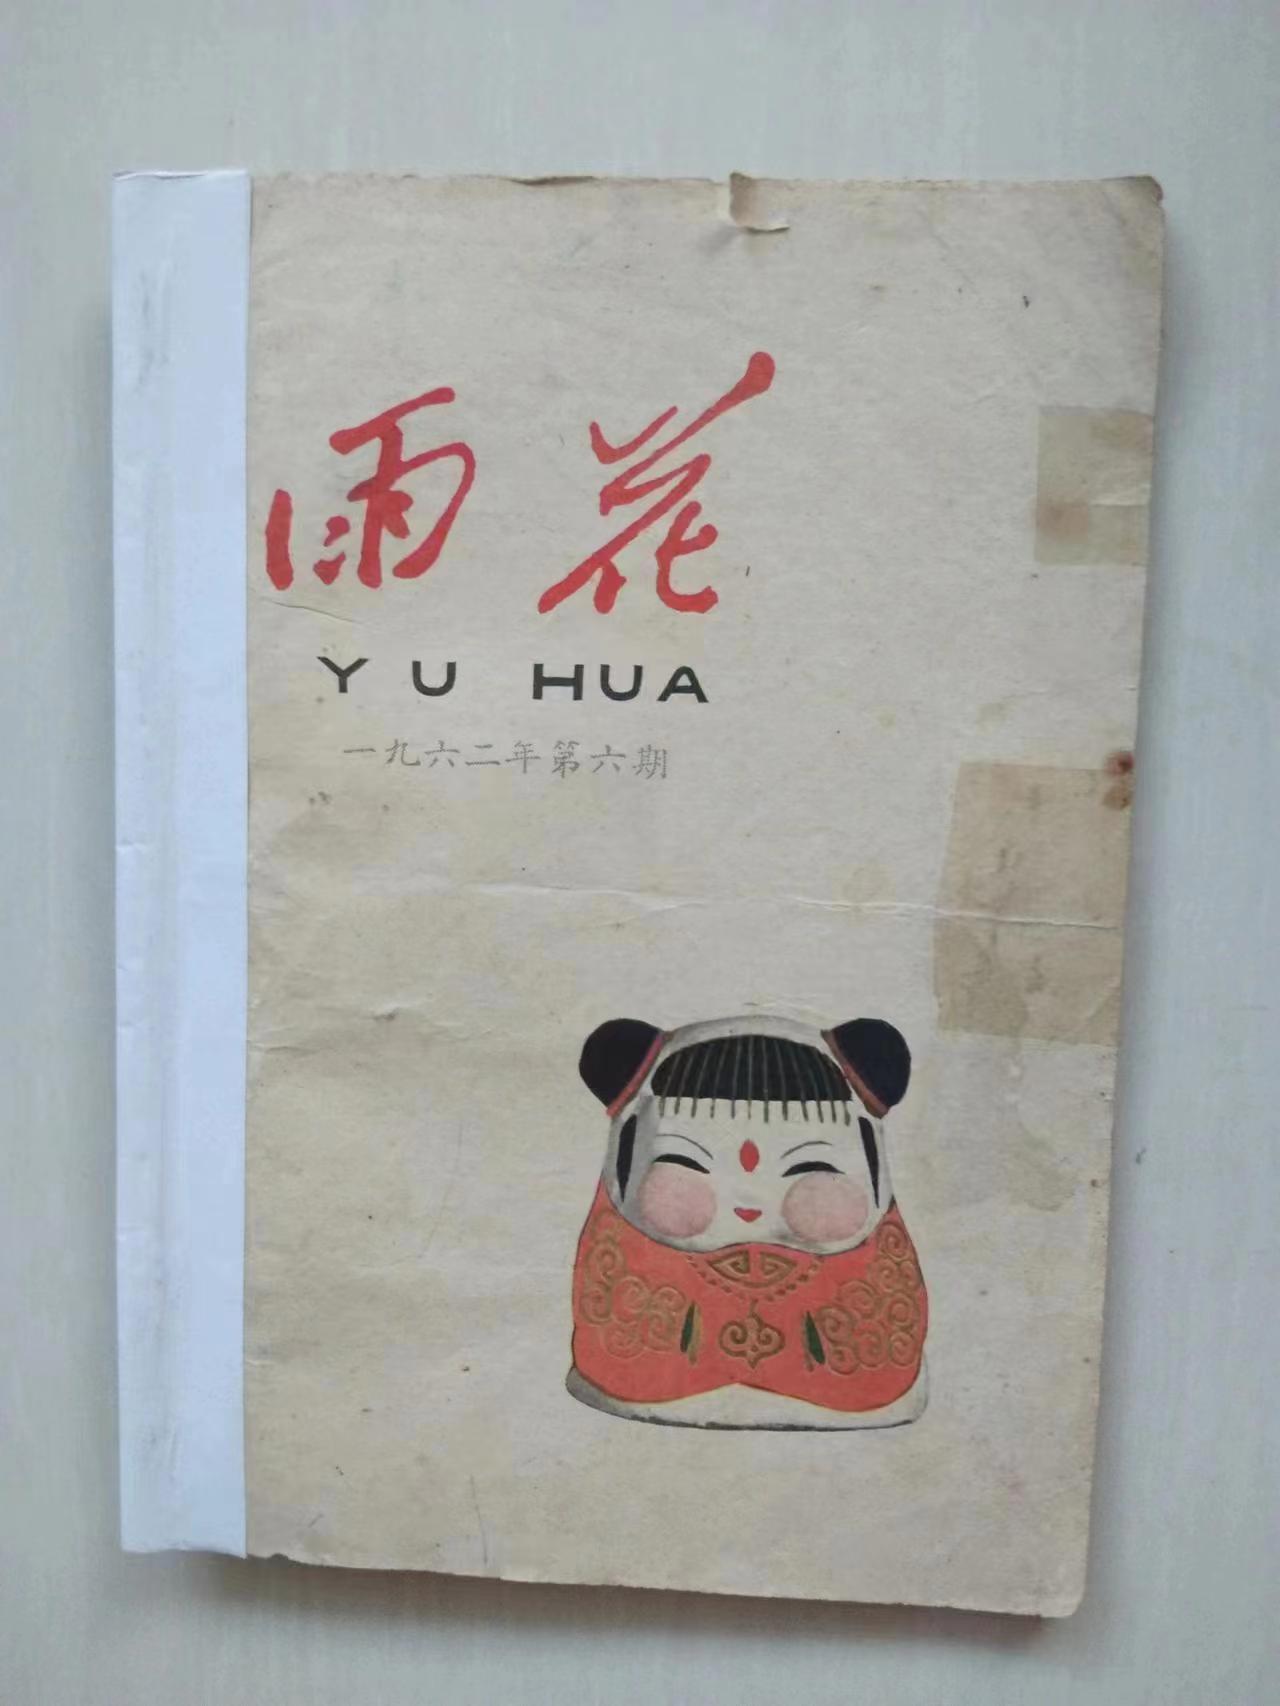 雨花
YU HUA
一九六二年第六期